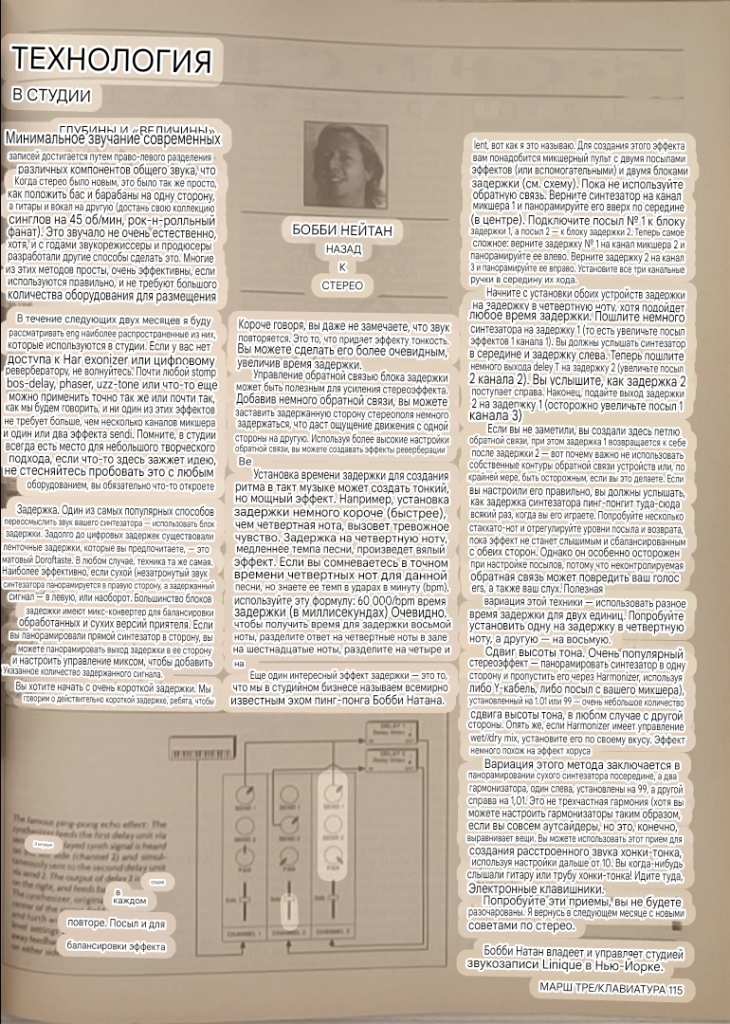 ТЕХНОЛОГИЯ
В СТУДИИ
ГЛУБИНЫ И «ВЕЛИЧИНЫ»
Минимальное звучание современных
записей достигается путем право-левого разделения
различных компонентов общего звука, что
Когда стерео было новым, это было так же просто,
как положить бас и барабаны на одну сторону,
а гитары и вокал на другую (достань свою коллекцию
синглов на 45 об/мин, рок-н-ролльный
фанат). Это звучало не очень естественно,
хотя, и с годами звукорежиссеры и продюсеры
разработали другие способы сделать это. Многие
из этих методов просты, очень эффективны, если
используются правильно, и не требуют большого
количества оборудования для размещения
В течение следующих двух месяцев я буду
рассматривать eng наиболее распространенные из них,
которые используются в студии. Если у вас нет
доступа к Har exonizer или цифровому
ревербератору, не волнуйтесь. Почти любой stomp
bos-delay, phaser, uzz-tone или что-то еще
можно применить точно так же или почти так,
как мы будем говорить, и ни один из этих эффектов
не требует больше, чем несколько каналов микшера
и один или два эффекта sendi. Помните, в студии
всегда есть место для небольшого творческого
подхода, если что-то здесь зажжет идею,
не стесняйтесь пробовать это с любым
оборудованием, вы обязательно что-то откроете
Задержка. Один из самых популярных способов
переосмыслить звук вашего синтезатора — использовать блок
задержки. Задолго до цифровых задержек существовали
ленточные задержки, которые вы предпочитаете, — это
матовый Doroftaste. В любом случае, техника та же самая.
Наиболее эффективно, если сухой (незатронутый звук
синтезатора панорамируется в правую сторону, а задержанный
сигнал — в левую, или наоборот. Большинство блоков
задержки имеют микс-конвертер для балансировки
обработанных и сухих версий приятеля. Если
вы панорамировали прямой синтезатор в сторону, вы
можете панорамировать выход задержки в ее сторону
и настроить управление миксом, чтобы добавить
Указанное количество задержанного сигнала.
Вы хотите начать с очень короткой задержки. Мы
говорим о действительно короткой задержке, ребята, чтобы
БОББИ НЕЙТАН
НАЗАД
К
СТЕРЕО
Короче говоря, вы даже не замечаете, что звук
повторяется. Это то, что придает эффекту тонкость.
Вы можете сделать его более очевидным,
увеличив время задержки.
Управление обратной связью блока задержки
может быть полезным для усиления стереоэффекта.
Добавив немного обратной связи, вы можете
заставить задержанную сторону стереополя немного
задержаться, что даст ощущение движения с одной
стороны на другую. Используя более высокие настройки
обратной связи, вы можете создавать эффекты реверберации
Ве
Установка времени задержки для создания
ритма в такт музыке может создать тонкий,
но мощный эффект. Например, установка
задержки немного короче (быстрее),
чем четвертная нота, вызовет тревожное
чувство. Задержка на четвертную ноту,
медленнее темпа песни, произведет вялый
эффект. Если вы сомневаетесь в точном
времени четвертных нот для данной
песни, но знаете ее темп в ударах в минуту (bpm),
используйте эту формулу: 60 000/bpm время
задержки (в миллисекундах) Очевидно,
чтобы получить время для задержки восьмой
ноты, разделите ответ на четвертные ноты в зале
на шестнадцатые ноты, разделите на четыре и
на
Еще один интересный эффект задержки — это то,
что мы в студийном бизнесе называем всемирно
известным эхом пинг-понга Бобби Натана.
lent, вот как я это называю. Для создания этого эффекта
вам понадобится микшерный пульт с двумя посылами
эффектов (или вспомогательными) и двумя блоками
задержки (см. схему). Пока не используйте
обратную связь. Верните синтезатор на канал
микшера 1 и панорамируйте его вверх по середине
(в центре). Подключите посыл № 1 к блоку
задержки 1, а посыл 2 — к блоку задержки 2. Теперь самое
сложное: верните задержку № 1 на канал микшера 2 и
панорамируйте ее влево. Верните задержку 2 на канал
3 и панорамируйте ее вправо. Установите все три канальные
ручки в середину их хода.
Начните с установки обоих устройств задержки
на задержку в четвертную ноту, хотя подойдет
любое время задержки. Пошлите немного
синтезатора на задержку 1 (то есть увеличьте посыл
эффектов 1 канала 1). Вы должны услышать синтезатор
в середине и задержку слева. Теперь пошлите
немного выхода deley T на задержку 2 (увеличьте посыл
2 канала 2). Вы услышите, как задержка 2
поступает справа. Наконец, подайте выход задержки
2 на задержку 1 (осторожно увеличьте посыл 1
канала 3)
Если вы не заметили, вы создали здесь петлю
обратной связи, при этом задержка 1 возвращается к себе
после задержки 2 — вот почему важно не использовать
собственные контуры обратной связи устройств или, по
крайней мере, быть осторожным, если вы это делаете. Если
вы настроили его правильно, вы должны услышать,
как задержка синтезатора пинг-понгит туда-сюда
всякий раз, когда вы его играете. Попробуйте несколько
стаккато-нот и отрегулируйте уровни посыла и возврата,
пока эффект не станет слышимым и сбалансированным
с обеих сторон. Однако он особенно осторожен
при настройке посылов, потому что неконтролируемая
обратная связь может повредить ваш голос
ers, а также ваш слух. Полезная
вариация этой техники — использовать разное
время задержки для двух единиц. Попробуйте
установить одну на задержку в четвертную
ноту, а другую — на восьмую.
Сдвиг высоты тона. Очень популярный
стереоэффект — панорамировать синтезатор в одну
сторону и пропустить его через Harmonizer, используя
либо Y-кабель, либо посыл с вашего микшера),
установленный на 1.01 или 99 — очень небольшое количество
сдвига высоты тона, в любом случае с другой
стороны. Опять же, если Harmonizer имеет управление
wet/dry mix, установите его по своему вкусу. Эффект
немного похож на эффект хоруса
Вариация этого метода заключается в
панорамировании сухого синтезатора посередине, а два
гармонизатора, один слева, установлены на 99, а другой
справа на 1,01. Это не трехчастная гармония (хотя вы
можете настроить гармонизаторы таким образом,
если вы совсем аутсайдеры, но это, конечно,
выравнивает вещи. Вы можете использовать этот прием для
создания расстроенного звука хонки-тонка,
используя настройки дальше от 10. Вы когда-нибудь
слышали гитару или трубу хонки-тонка! Идите туда,
Электронные клавишники.
Попробуйте эти приемы, вы не будете
разочарованы. Я вернусь в следующем месяце с новыми
советами по стерео.
Бобби Натан владеет и управляет студией
звукозаписи Linique в Нью-Йорке.
МАРШ ТРЕ/КЛАВИАТУРА 115
The famous ping-pong echo effect: The
synthesizer feeds the first delay unit via
layed synth signal is heard
side (channel 2) and simul-
taneously sent to the second delay unit
via send 2. The output of delay 2 is
on the right, and feeds
The synthesizer, original
в
каждом
повторе. Посыл и для
балансировки эффекта
DELAY 1
DELAY 2
SEND 1
SEND 1
SEND 1
SEND 2
SEND 2
SEND 2
PAN
PAN
PAN
CHANNEL 1
CHANNEL 2
CHANNEL 3